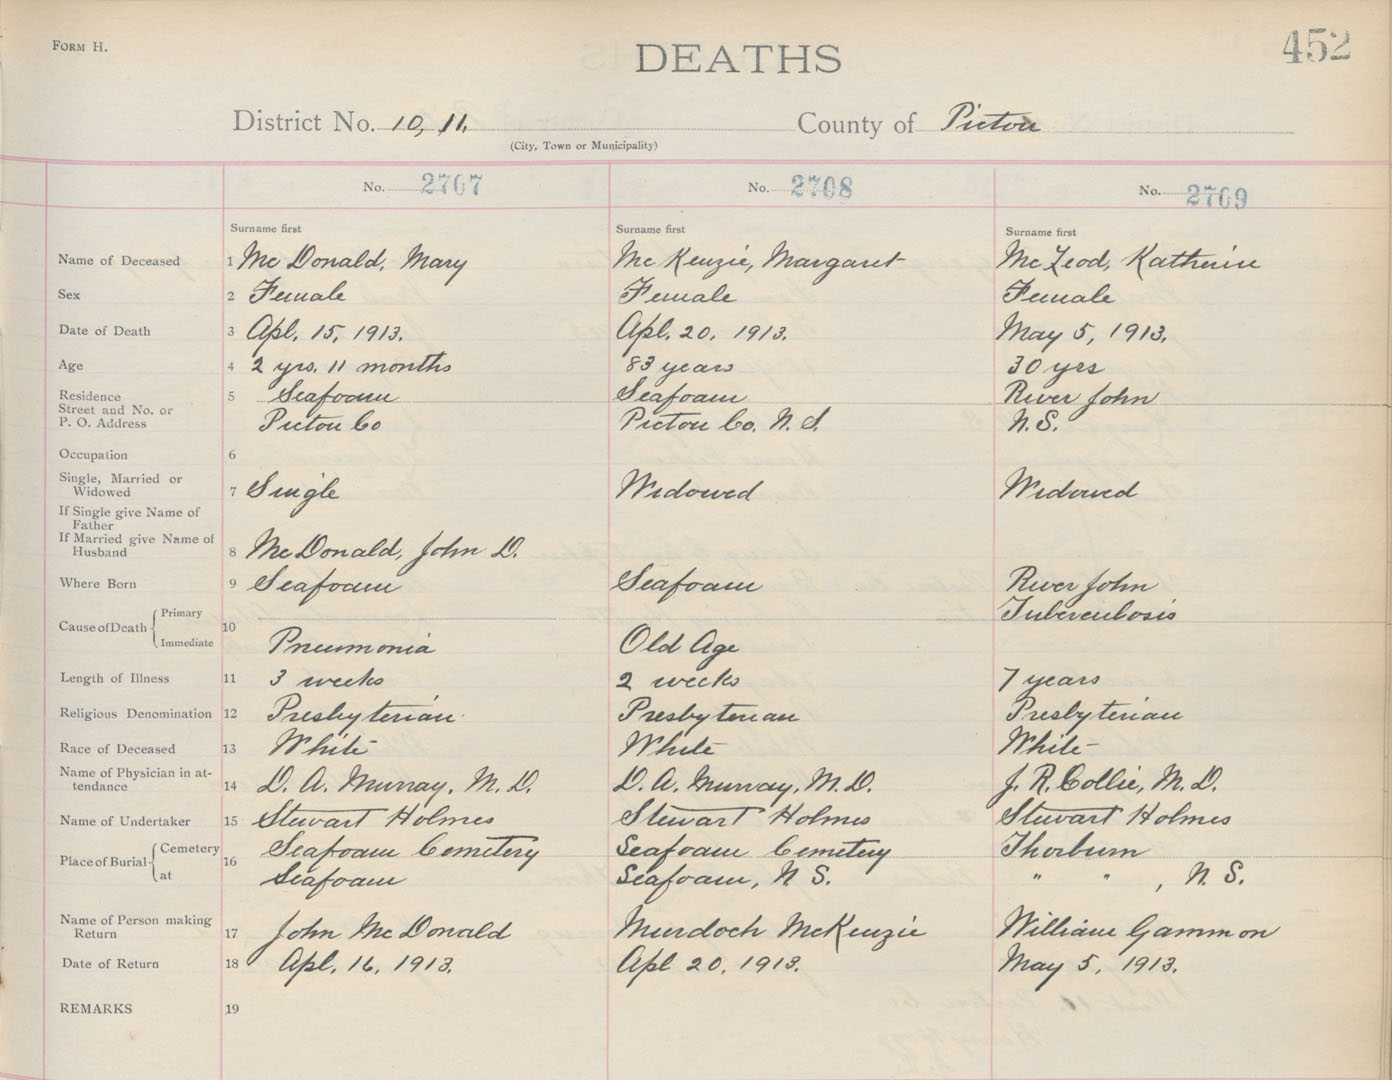 FORM H.
DEATHS
452
District No. 10, 11. County of Pictou
(City, Town or Municipality)
No. 2707 No. 2708 No. 2709
Surname first Surname first Surname first
Name of Deceased 1 McDonald, Mary McKenzie, Margaret McLeod, Katherine
Sex 2 Female Female Female
Date of Death 3 Apl. 15, 1913. Apl. 20, 1913. May 5, 1913.
Age 4 2 yrs. 11 months 83 years 30 yrs
Residence 5 Seafoam Seafoam River John
Street and No. or
P. O. Address Pictou Co Pictou Co. N. S. N. S.
Occupation 6
Single, Married or
Widowed 7 Single Widowed Widowed
If Single give Name of
Father
If Married give Name of
Husband 8 McDonald, John D.
Where Born 9 Seafoam Seafoam River John
Cause of Death Primary 10 Tuberculosis
Immediate Pneumonia Old Age
Length of Illness 11 3 weeks 2 weeks 7 years
Religious Denomination 12 Presbyterian Presbyterian Presbyterian
Race of Deceased 13 White White White
Name of Physician in at-
tendance 14 D. A. Murray, M. D. D. A. Murray, M. D. J. R. Collie, M. D.
Name of Undertaker 15 Stewart Holmes Stewart Holmes Stewart Holmes
Place of Burial Cemetery 16 Seafoam Cemetery Seafoam Cemetery Thorburn
at Seafoam Seafoam, N. S. " " , N. S.
Name of Person making
Return 17 John McDonald Murdoch McKenzie William Gammon
Date of Return 18 Apl. 16, 1913. Apl 20, 1913. May 5, 1913.
REMARKS 19